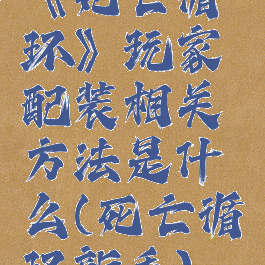 《死亡循
环》玩家
配装相关
方法是什
么(死亡循
环新手)